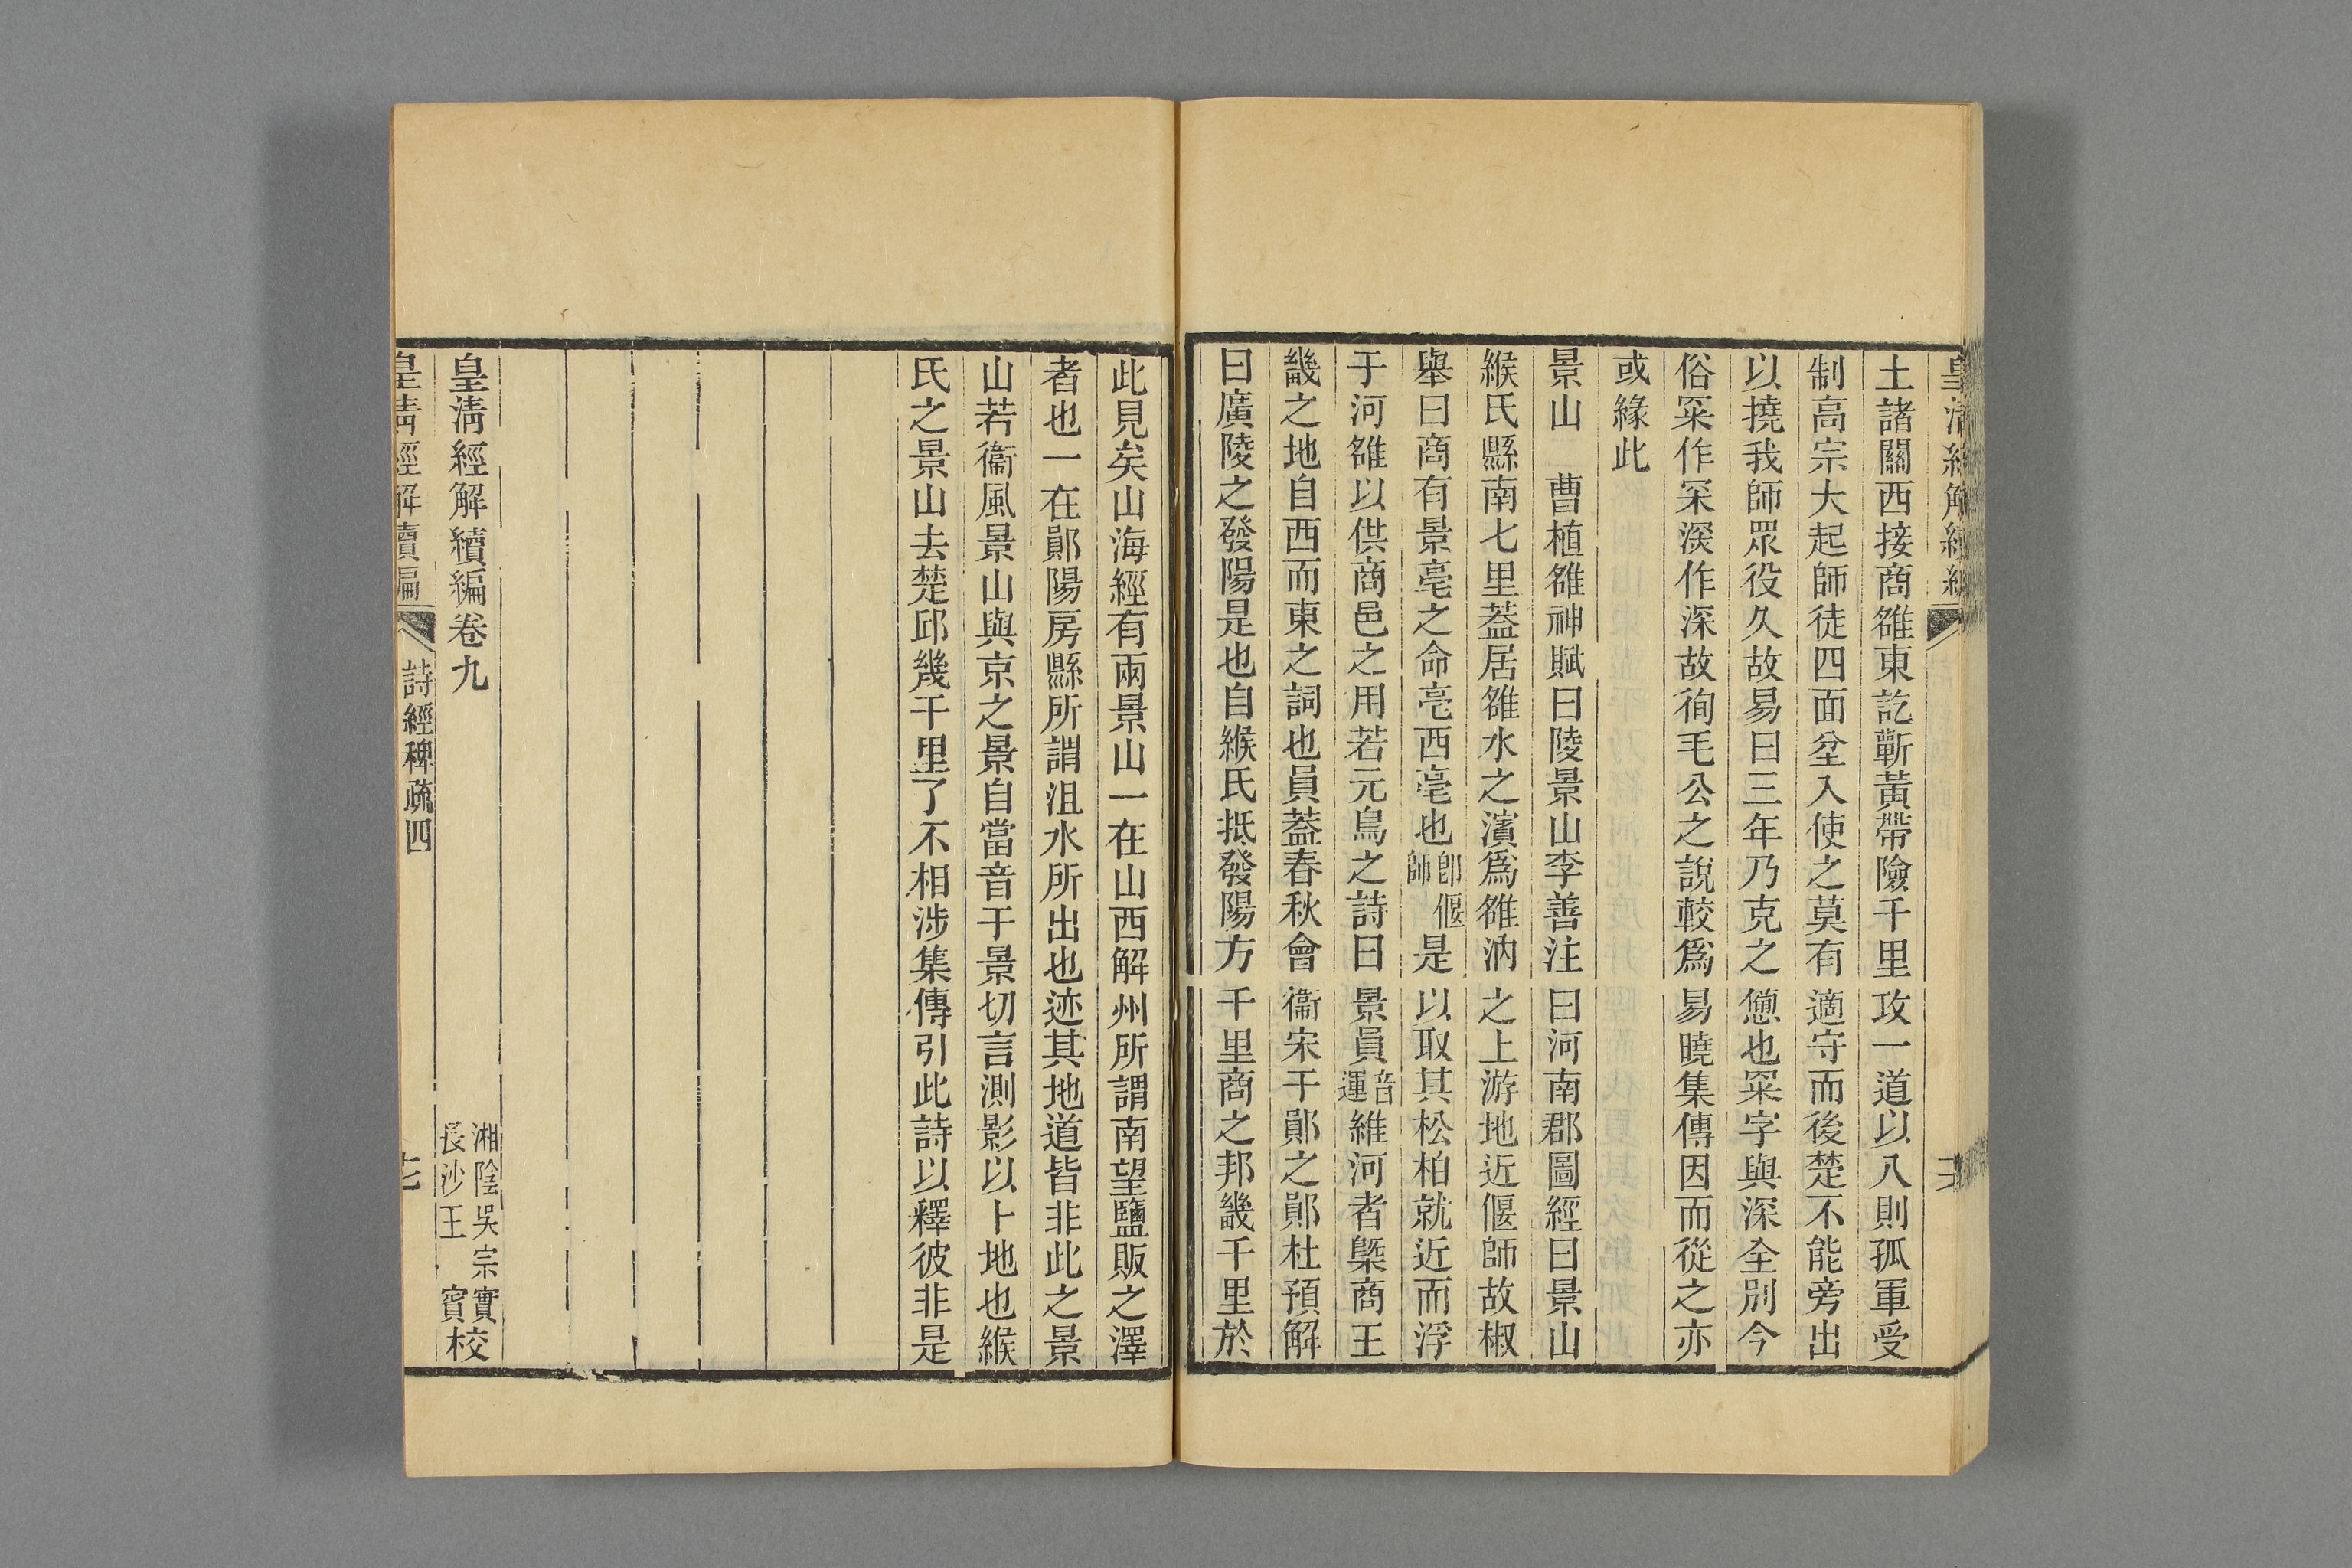 土諸關西接商雒東訖蘄黃帶險千里攻一道以入則孤軍受
制高宗大起師徒四面坌入使之莫有適守而後楚不能旁出
以撓我師眾役久故易曰三年乃克之憊也罙字與深全別今
俗罙作冞㴱作深故徇毛公之說較爲易曉集傳因而從之亦
或緣此
景山　曹植雒神賦曰陵景山李善注曰河南郡圖經曰景山
緱氏縣南七里葢居雒水之濱爲雒汭之上游地近偃師故椒
舉曰商有景亳之命亳西亳也卽偃師是以取其松柏就近而浮
于河雒以供商邑之用若元鳥之詩曰景員音運維河者槩商王
畿之地自西而東之詞也員葢春秋會衞宋于鄖之鄖杜預解
曰廣陵之發陽是也自緱氏抵發陽方千里商之邦畿千里於
此見矣山海經有兩景山一在山西解州所謂南望鹽販之澤
者也一在鄖陽房縣所謂沮水所出也迹其地道皆非此之景
山若衞風景山與京之景自當音于景切言測影以卜地也緱
氏之景山去楚邱幾千里了不相涉集傳引此詩以釋彼非是
皇淸經解續編卷九
湘陰吳宗實
長沙王　賓校
皇淸經解續編　詩經稗疏四